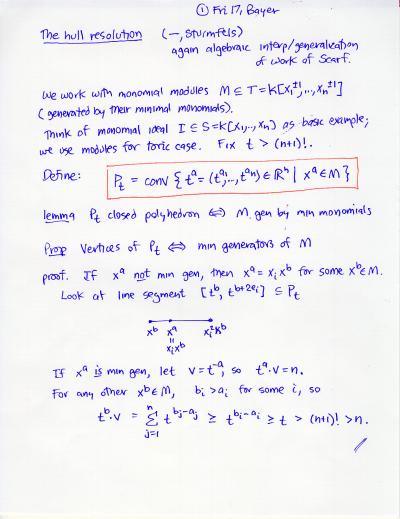 ① Fri 17, Bayer
The hull resolution (—, Sturmfels)
again algebraic interp/generalization
of work of Scarf.
We work with monomial modules M ⊆ T = k[x₁^±1,..., xₙ^±1]
(generated by their minimal monomials).
Think of monomial ideal I ⊆ S = k[x₁,..., xₙ] as basic example;
we use modules for toric case. Fix t > (n+1)!.
Define: P_t = conv { t^a = (t^a₁,..., t^aₙ) ∈ ℝⁿ | x^a ∈ M }
lemma P_t closed polyhedron ⇔ M gen by min monomials
Prop Vertices of P_t ⇔ min generators of M
proof. If x^a not min gen, then x^a = x_i x^b for some x^b ∈ M.
Look at line segment [t^b, t^b+2e_i] ⊆ P_t
x^b x^a x_i² x^b
=
x_i x^b
If x^a is min gen, let v = t^-a, so t^a · v = n.
For any other x^b ∈ M, b_i > a_i for some i, so
t^b · v = Σ_{j=1}^{n} t^{b_j - a_j} ≥ t^{b_i - a_i} ≥ t > (n+1)! > n.